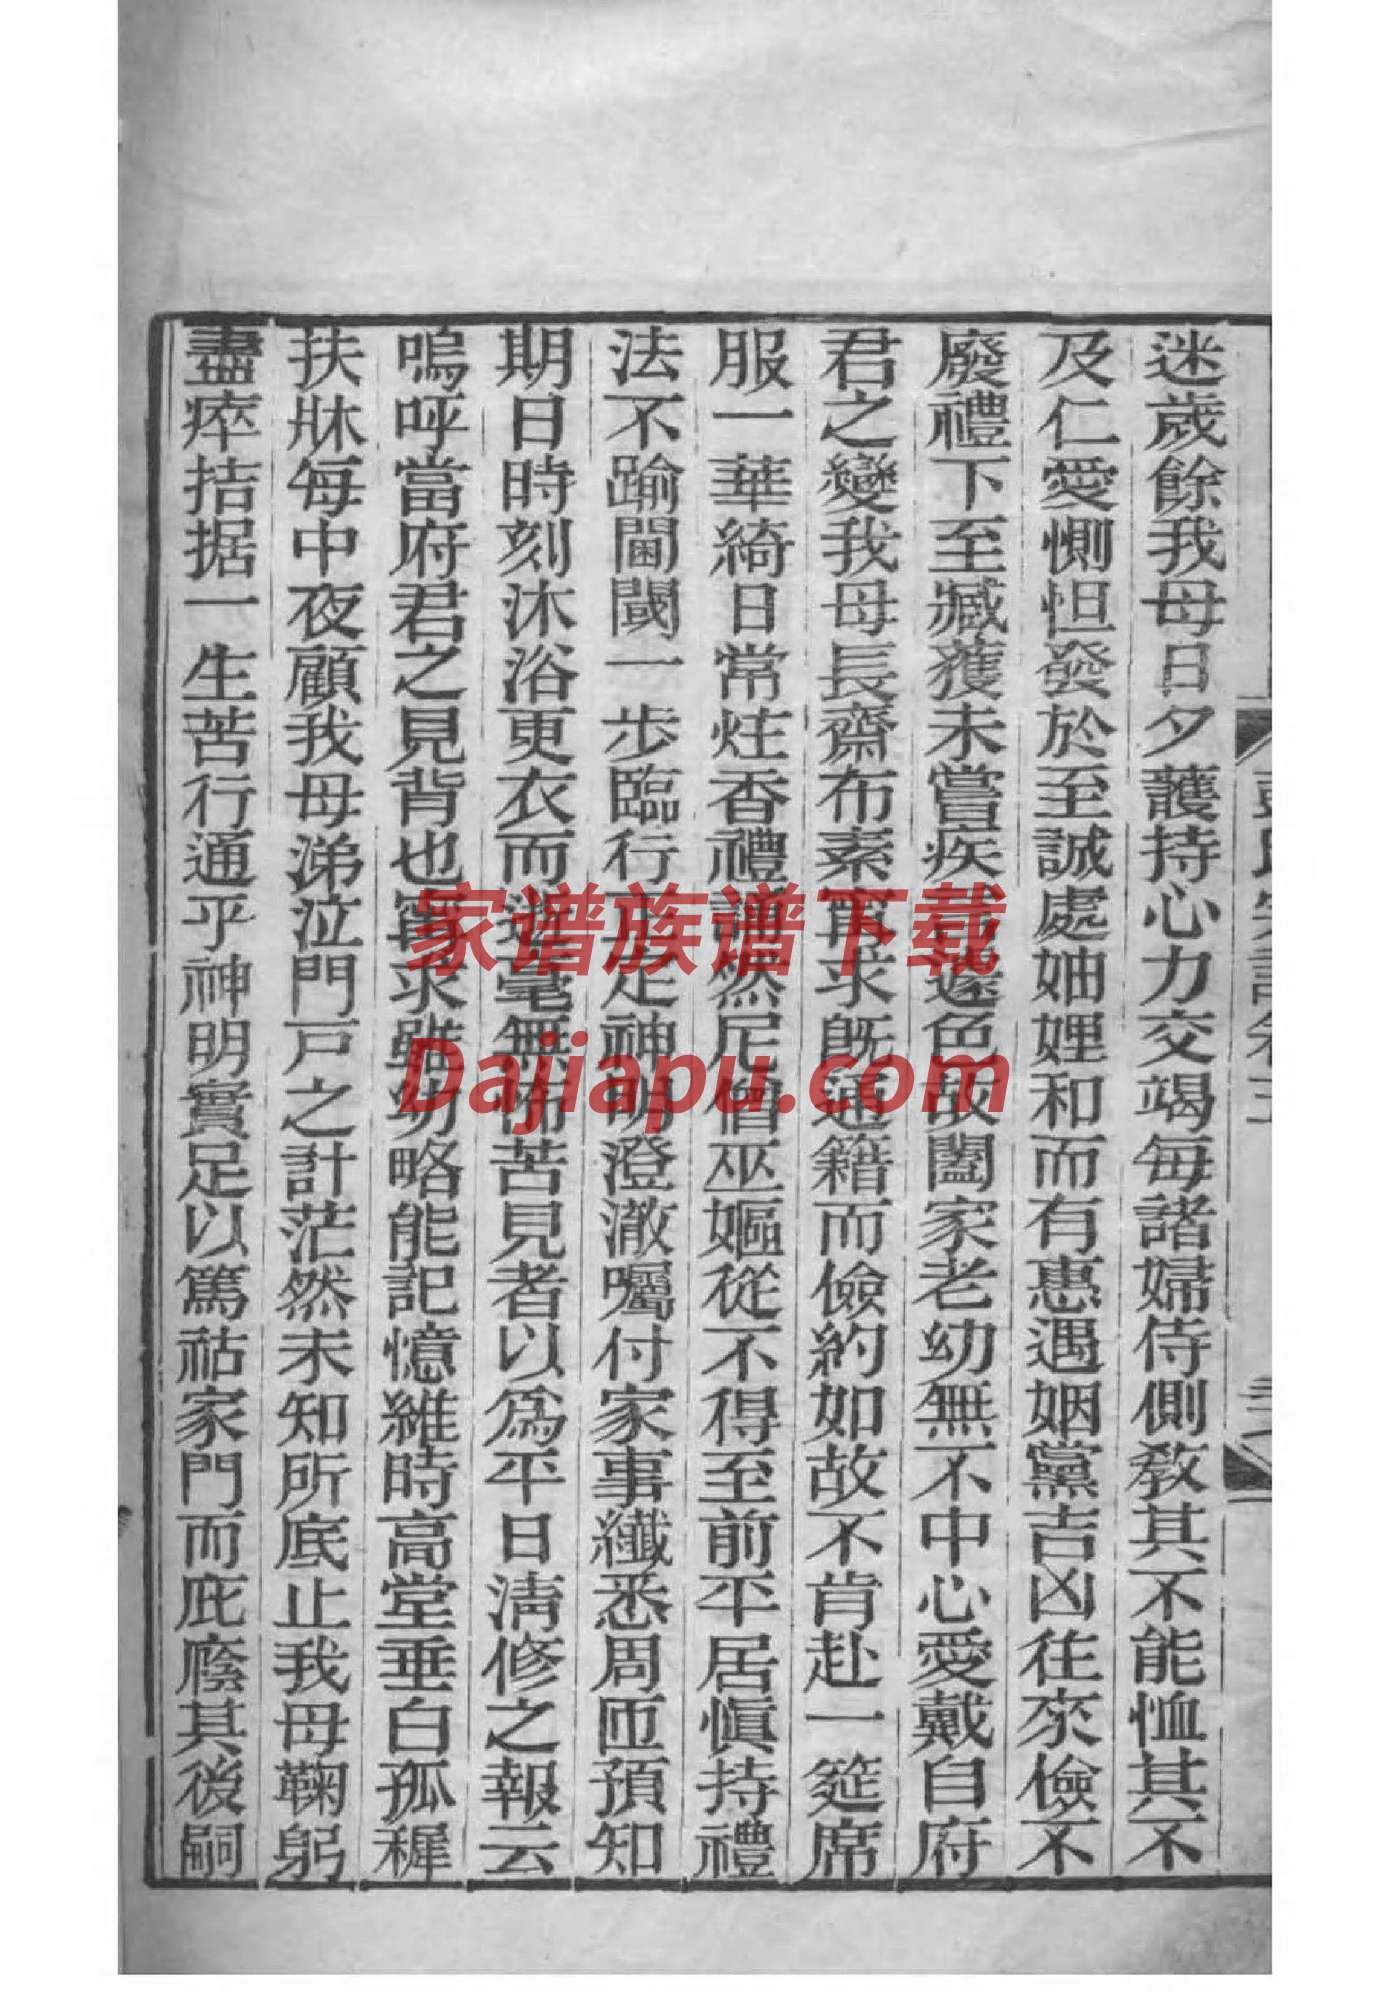 迷歲餘我母日夕護持心力交竭每諸婦侍側敎其不能恤其不
及仁愛惻怛發於至誠處妯娌和而有惠遇姻黨吉凶往來儉不
廢禮下至臧獲未嘗疾言遽色故闔家老幼無不中心愛戴自府
君之變我母長齋布素寗求旣通籍而儉約如故不肯赴一筵席
服一華綺日常炷香禮誦然尼僧巫嫗從不得至前平居愼持禮
法不踰閫閾一步臨行正定神明澄澈囑付家事纖悉周匝預知
期日時刻沐浴更衣而逝毫無怖苦見者以爲平日淸修之報云
嗚呼當府君之見背也寗求雖幼略能記憶維時高堂垂白孤穉
扶牀每中夜顧我母涕泣門戸之計茫然未知所底止我母鞠躬
盡瘁拮据一生苦行通乎神明實足以篤祜家門而庇廕其後嗣
家谱族谱下载
Dajiapu.com